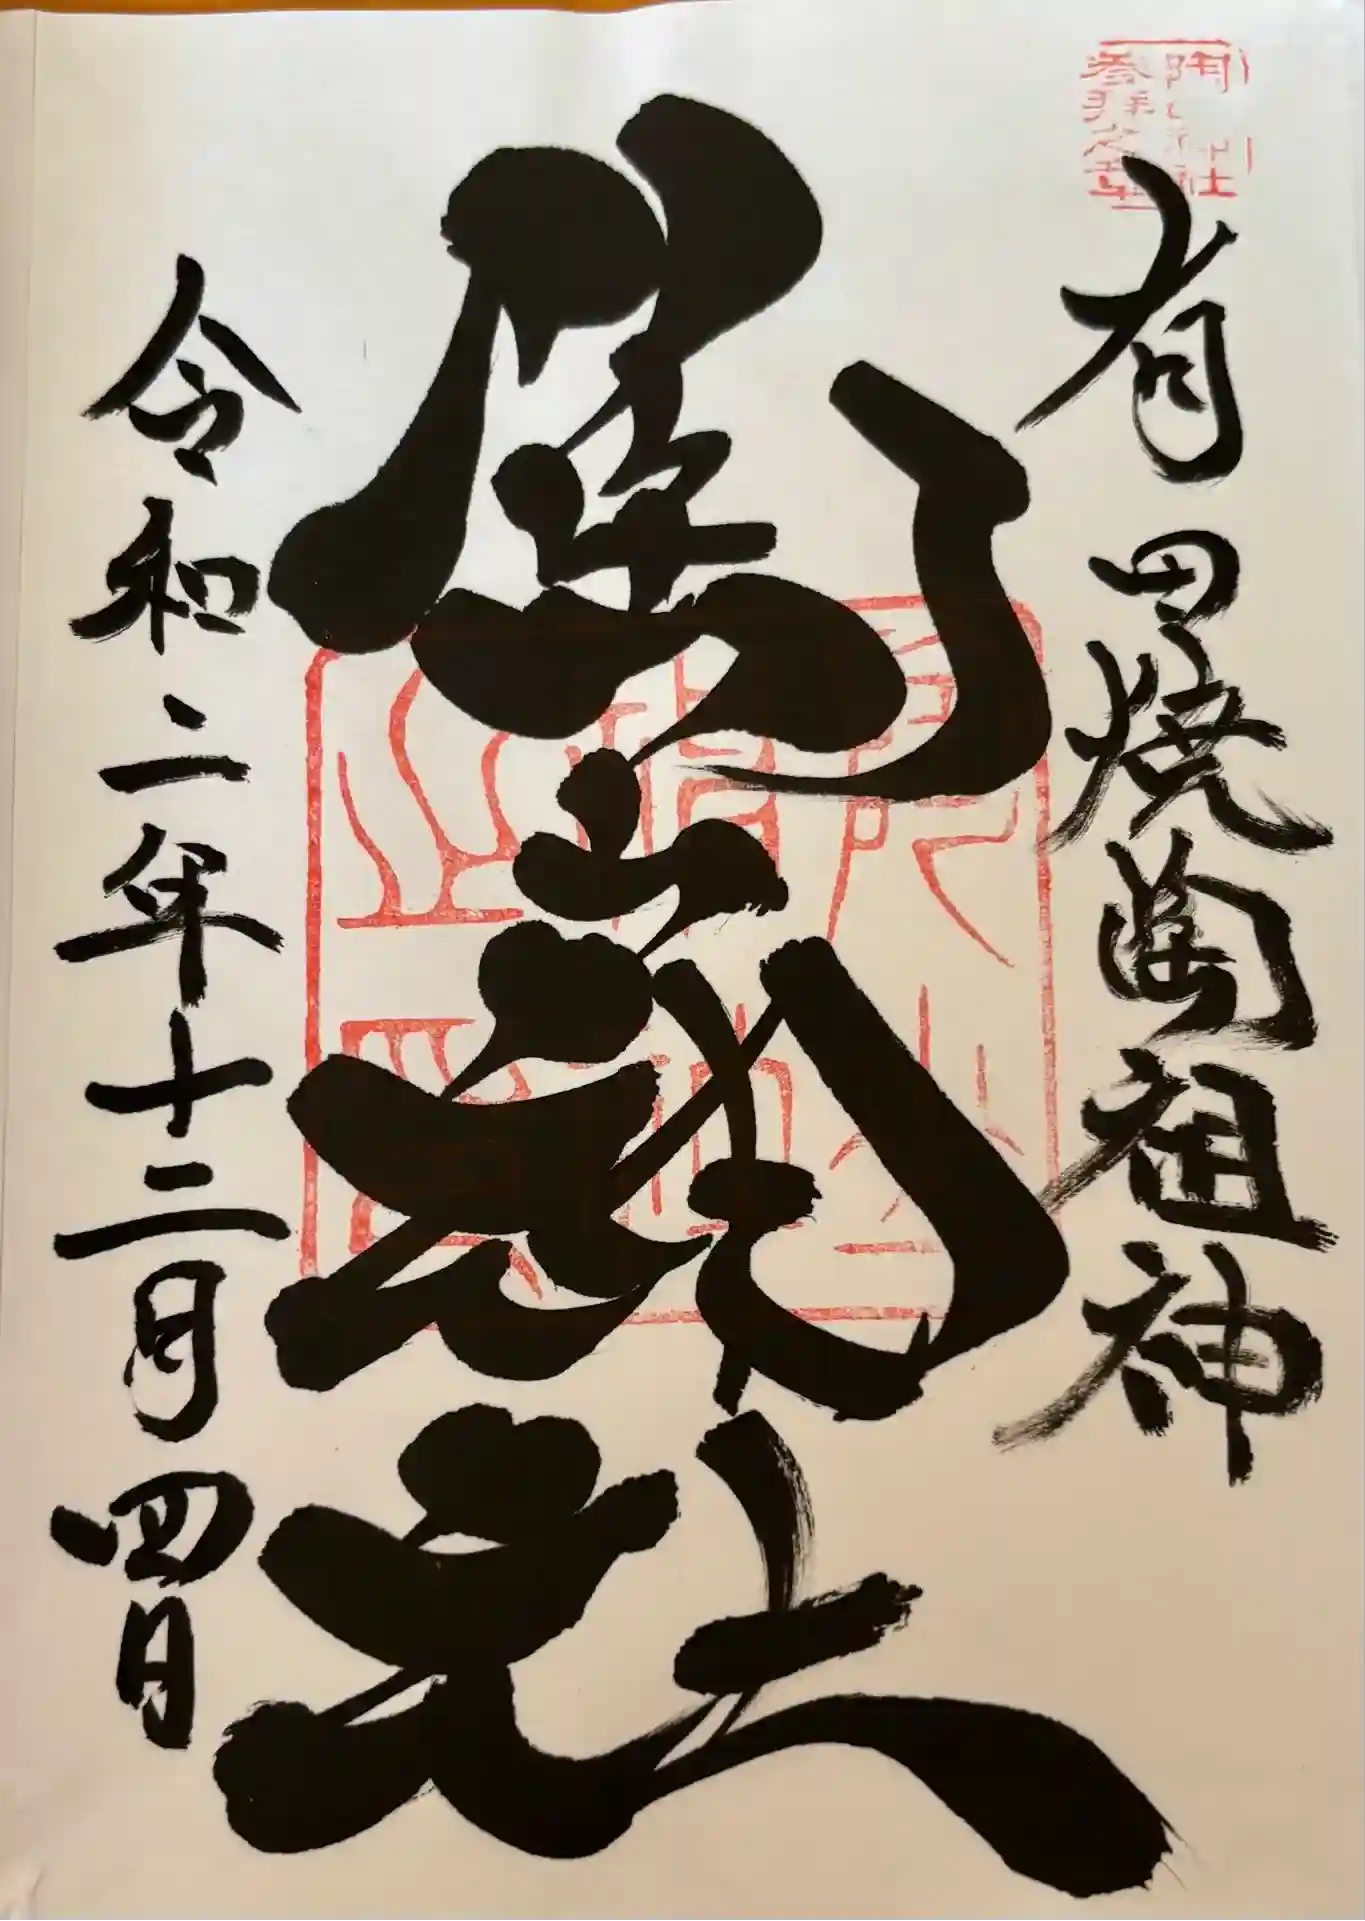 陶山神社
参拝之章
有田焼陶祖神
陶山神社
令和二年十二月四日